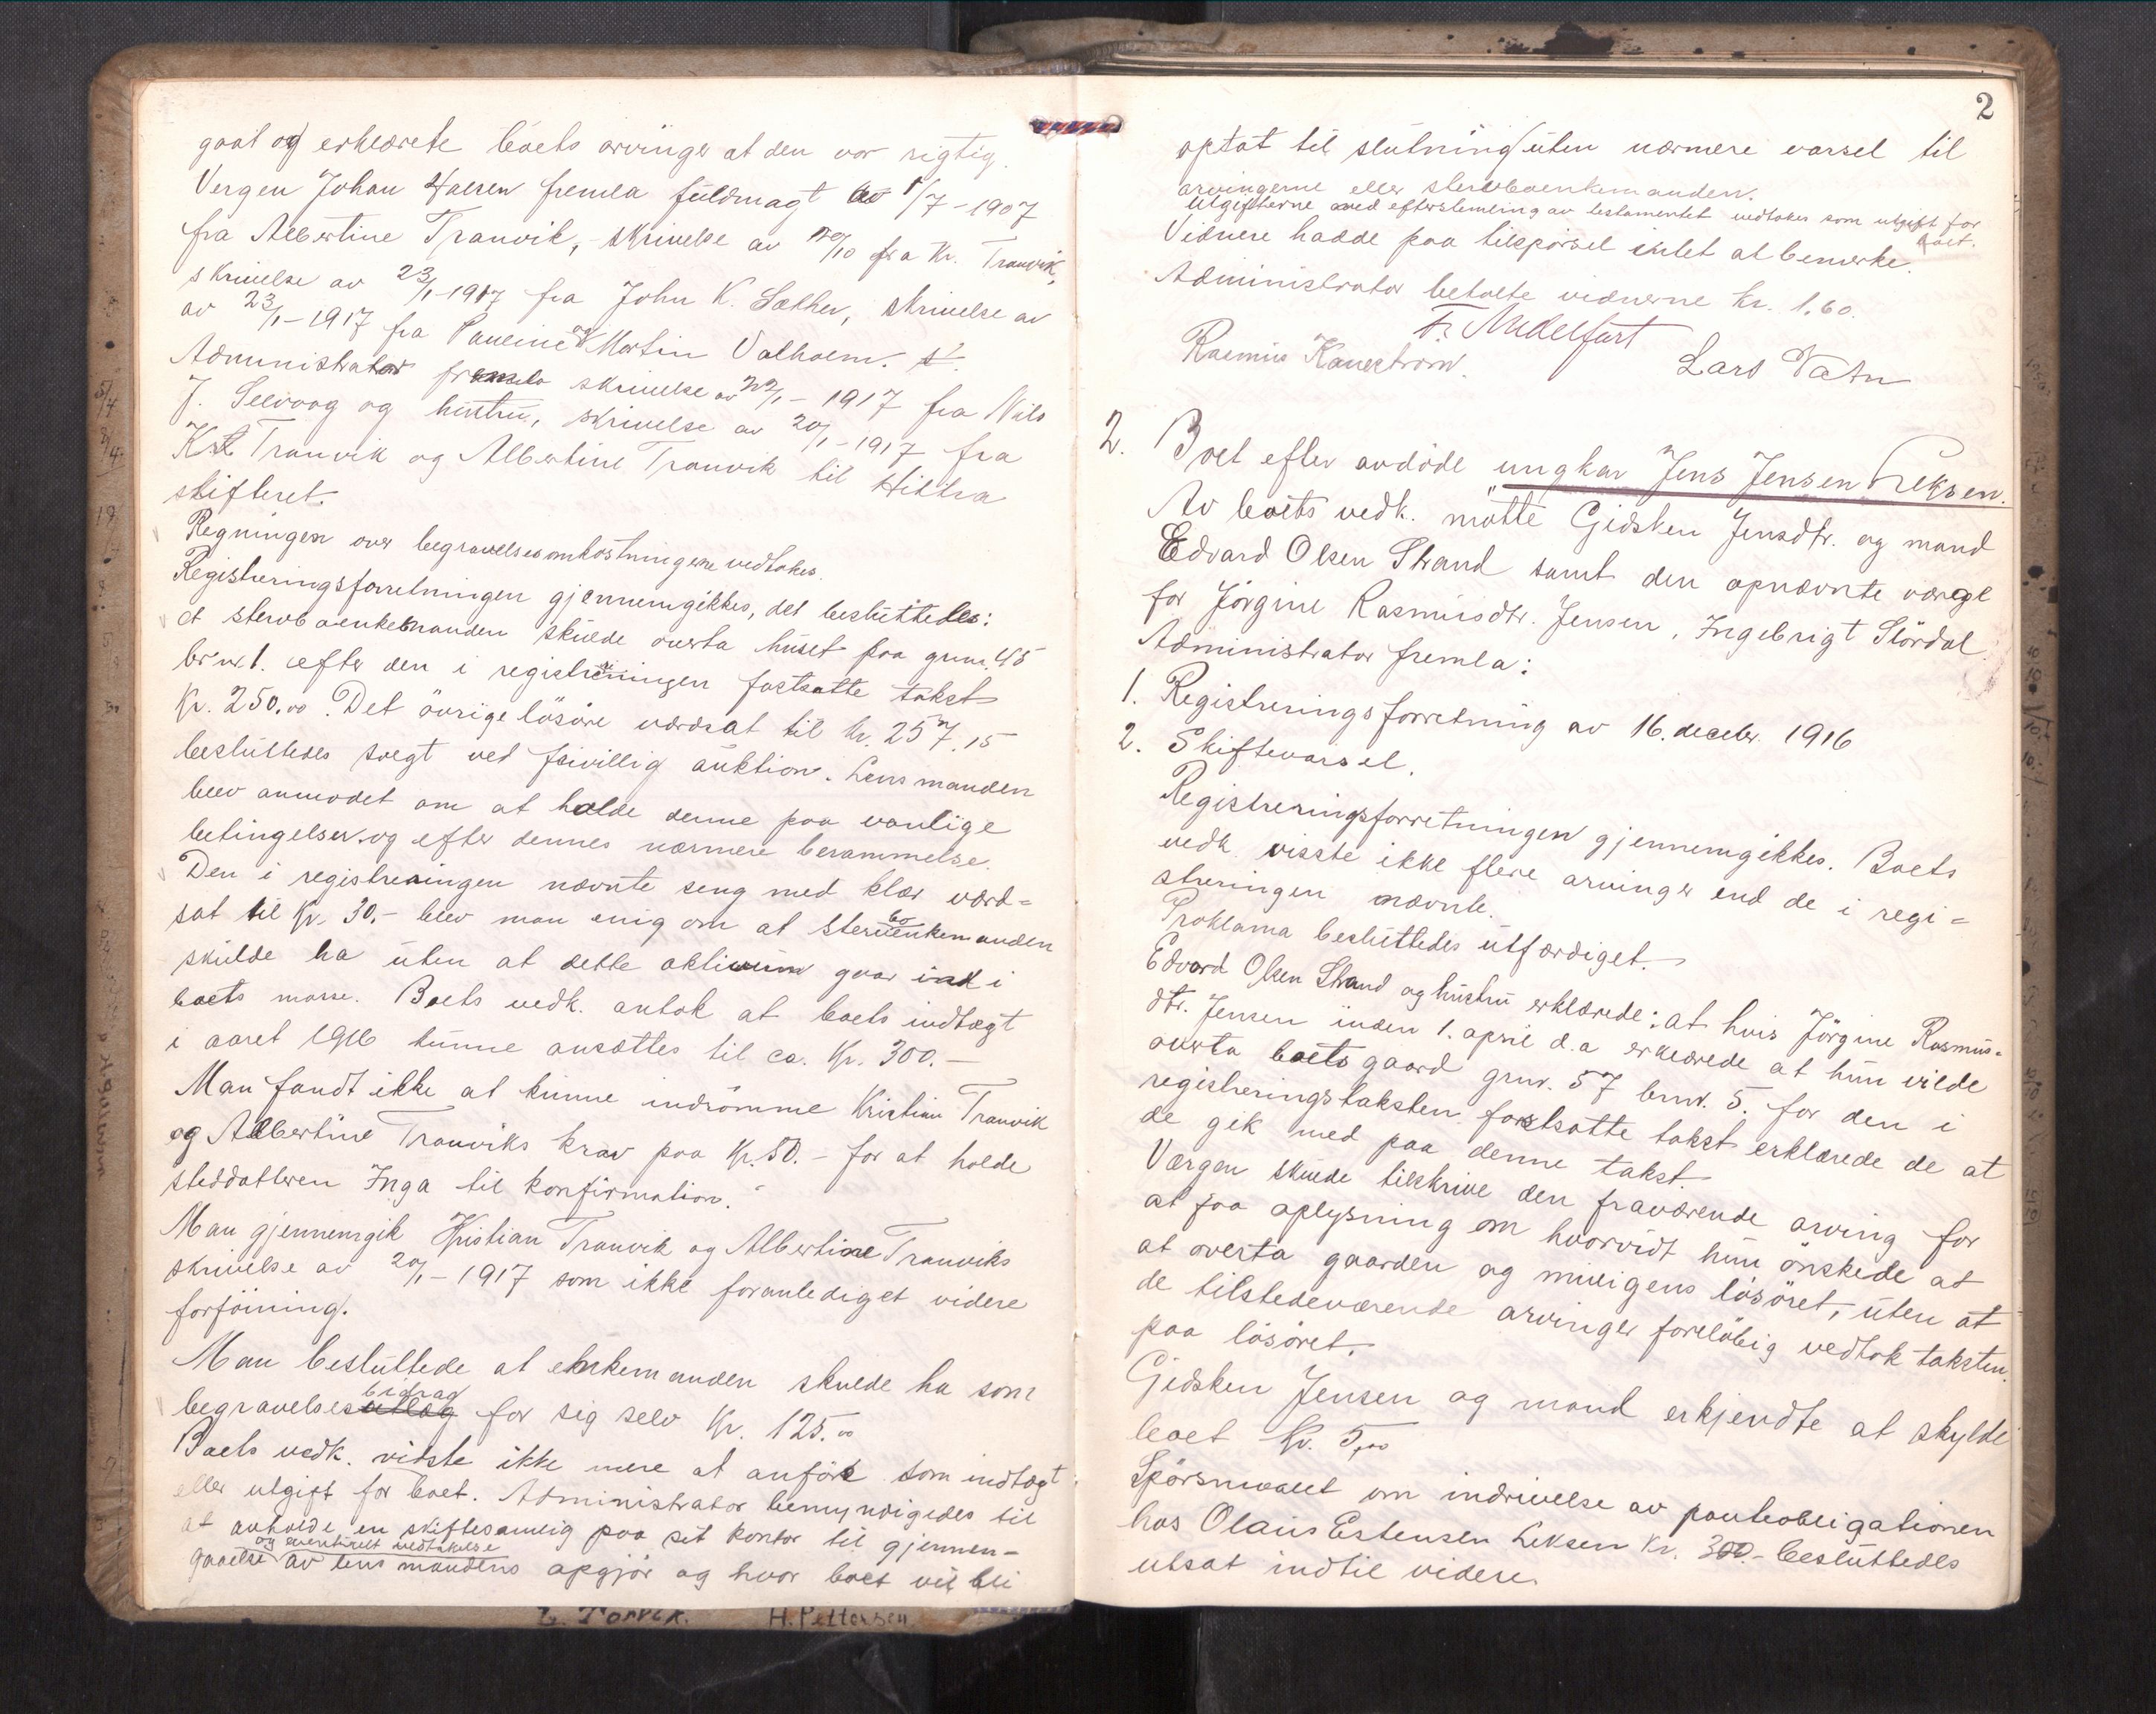 gaat og erklærete boets arvinger at den var rigtig.
Vergen Johan Halsen fremla fuldmagt av 1/7-1907
fra Albertine Tranvik, skrivelse av 20/10 fra Kr. Tranvik,
skrivelse av 23/1-1917 fra John K. Sæther, skrivelse av
av 23/1-1917 fra Pauline og Martin Valholm.
Administrator fremla skrivelse av 22/1-1917 fra Nils
J. Selvaag og hustru, skrivelse av 20/1-1917 fra
Kr. Tranvik og Albertine Tranvik til Hittra
skifteret.
Regningen over begravelsesomkostningene vedtokes.
Registreringsforretningen gjennemgikkes, det besluttedes:
at stervboenkemanden skulde overta huset paa grnr. 45
br nr 1. efter den i registreringen fastsatte takst
Kr. 250.00. Det övrige lösöre værdsat til kr. 257.15
besluttedes solgt ved frivillig auktion. Lensmanden
blev anmodet om at holde denne paa vanlige
betingelser og efter dennes nærmere berammelse.
Den i registreringen nævnte seng med klær værd=
sat til Kr. 30.- blev man enig om at stervboenkemanden
skulde ha uten at dette aktivum gaar ind i
boets masse. Boets vedk. antok at boets indtægt
i aaret 1916 kunne ansættes til ca. Kr. 300.-
Man fandt ikke at kunne indrömme Kristian Tranvik
og Albertine Tranviks krav paa Kr. 50.- for at holde
steddatteren Inga til konfirmation.
Man gjennemgik Kristian Tranvik og Albertine Tranviks
skrivelse av 20/1-1917 som ikke foranlediget videre
forföining.
Man besluttede at enkemanden skulde ha som
begravelsesutlæg bidrag for sig selv Kr. 125.00
Boets vedk. vidste ikke mere at anföre som indtægt
eller utgift for boet. Administrator bemyndigedes til
at avholde en skiftesamlig paa sit kontor til gjennem-
gaaelse og eventuelt vedtakelse av lensmandens opgjör og hvor boet vil bli
2
optat til slutning uten nærmere varsel til
arvingerne eller stervboenkemanden.
Utgifterne med efterstemling av testamentet vedtokes som utgift for
boet.
Vidnene hadde paa tilspörsel intet at bemerke.
Administrator betalte vidnerne kr. 1.60.
Fr. Andelfart
Rasmus Lars Vatn
2. Boet efter avdöde ungkar Jens Jensen Leksen.
Av boets vedk. mötte Gidsken Jensdtr. og mand
Edvard Olsen Strand samt den opnævnte værge
for Jörgine Rasmusdtr. Jensen, Ingebrigt Stördal.
Administrator fremla:
1. Registreringsforretning av 16. decebr. 1916
2. Skiftevarsel.
Registreringsforretningen gjennemgikkes. Boets
vedk visste ikke flere arvinger end de i regi=
streringen nævnte.
Proklama besluttedes utfærdiget.
Edvard Olsen Strand og hustru erklærede: at hvis Jörgine Rasmus=
dtr. Jensen inden 1. april d.a erklærede at hun vilde
overta boets gaard grnr. 57 brnr. 5. for den i
registreringstaksten fastsatte takst erklærede de at
de gik med paa denne takst.
Værgen skulde tilskrive den fraværende arving for
at faa oplysning om hvorvidt hun önskede at
at overta gaarden og muligens lösöret, uten at
de tilstedeværende arvinger foreløbig vedtok taksten
paa lösöret.
Gidsken Jensen og mand erkjendte at skylde
boet Kr. 5,00
Spörsmaalet om indrivelse av panteobligationen
hos Olaus Estensen Leksen Kr. 300.- besluttedes
utsat indtil videre
L. Torvik. H. Pettersen